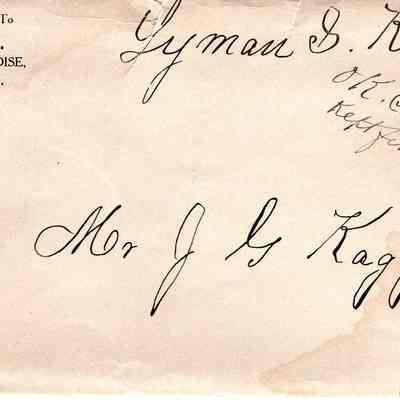 To
OISE,
Lyman D. K
OK.
Kept for
Mr J G Kag